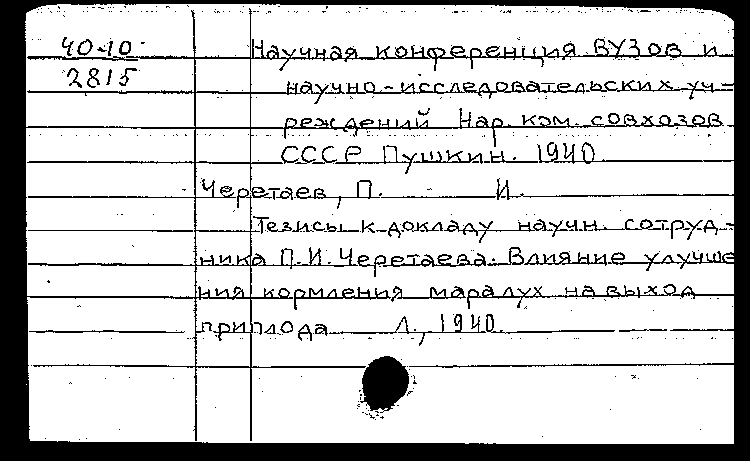 40-10
2815
Научная конференция ВУЗов и
научно-исследовательских уч-
реждений Нар. ком. совхозов
СССР Пушкин. 1940
Черетаев, П. И.
Тезисы к докладу научн. сотруд-
ника П.И. Черетаева. Влияние улучше
ния кормления маралух на выход
приплода Л., 1940.